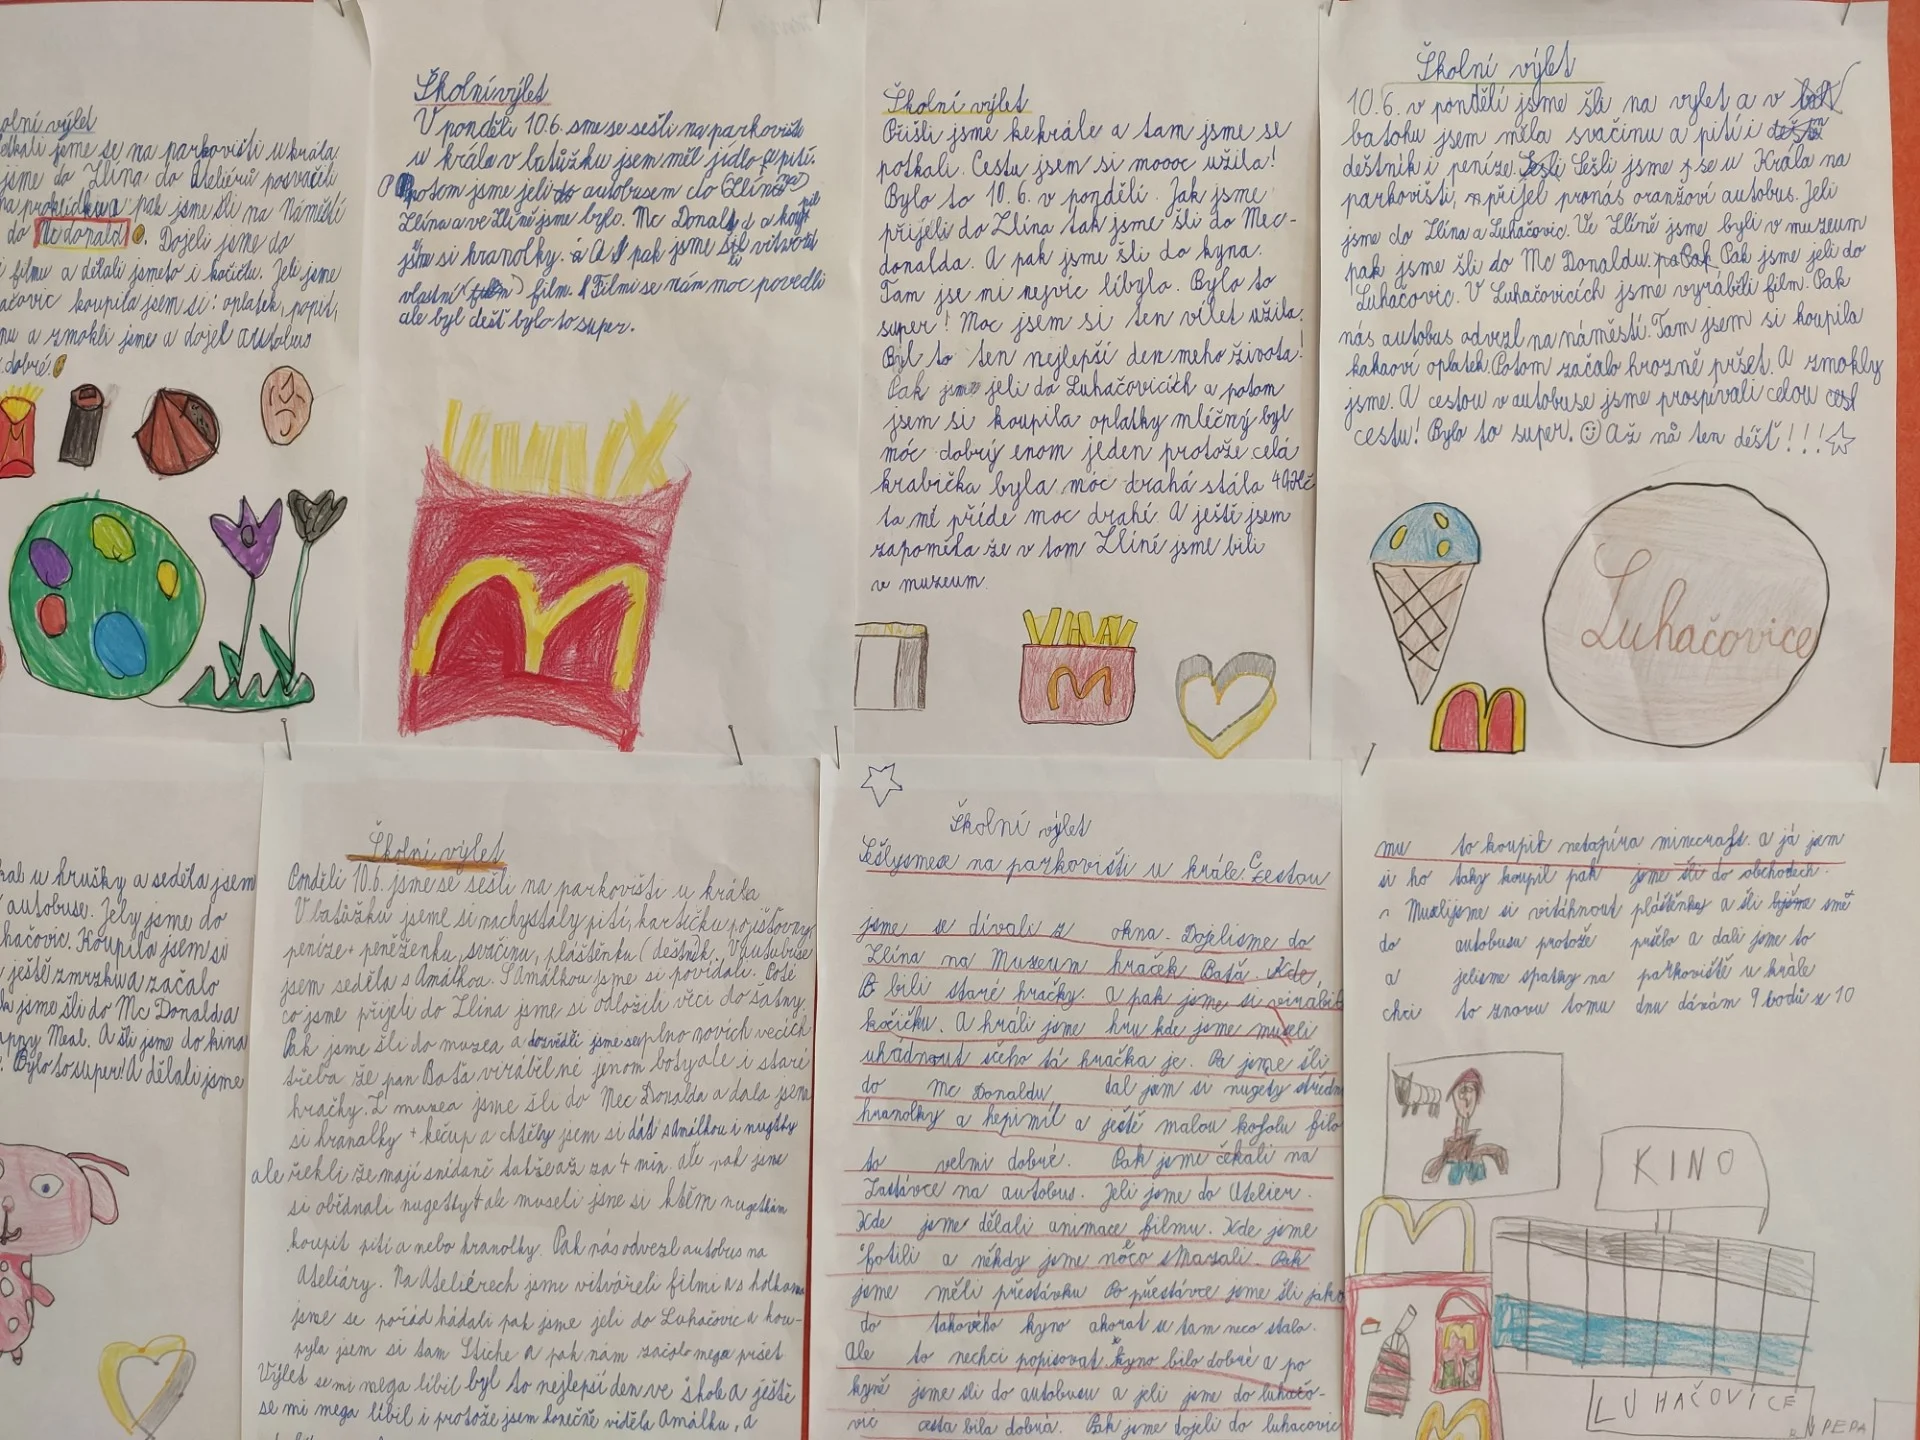 olní výlet
etkali jsme se na parkovišti u krála.
jsme do Zlína do Ateliérů posvačili
na proklídkua pak jsme šli na Námětí
do Mc donald. Dojeli jsme do
filmu a dělali jsme to i kočičku. Jeli jsme
ačovic koupila jsem si: oplatek, popit,
mu a zmokli jsme a dojel autobus
dobré.
Školní výlet
V pondělí 10.6. sme se sešli na parkovišti
u krála v batůžku jsem měl jídlo a pití.
potom jsme jeli autobusem do
Zlína a ve Zlíně jsme bylo. Mc Donald a
jsme si hranolky. A pak jsme šli vitvořit
vlastní film. Filmi se nám moc povedli
ale byl déšť bylo to super.
Školní výlet
Přišli jsme ke krále a tam jsme se
potkali. Cestu jsem si moooc užila!
Bylo to 10.6. v pondělí. Jak jsme
přijeli do Zlína tak jsme šli do Mec-
donalda. A pak jsme šli do kyna.
Tam jse mi nejvíc líbylo. Bylo to
super! Moc jsem si ten vílet užila.
Byl to ten nejlepší den meho života!
Pak jsme jeli do Luhačovicích a potom
jsem si koupila oplatky mléčný byl
móc dobrý enom jeden protože celá
krabička byla móc drahá stála 40Kč
to mě příde moc drahí. A ještě jsem
zapoměla že v tom Zlíně jsme bili
v muzeum.
Školní výlet
10.6. v pondělí jsme šli na vylet a v
batohu jsem měla svačinu a pití i
deštník i peníze. Sešli jsme se u Krála na
parkovišti, přijel pronás oranžoví autobus. Jeli
jsme do Zlína a Luhačovic. Ve Zlíně jsme byli v muzeum
pak jsme šli do Mc Donaldu. Pak jsme jeli do
Luhačovic. V Luhačovicích jsme vyráběli film. Pak
nás autobus odvezl na náměstí. Tam jsem si koupila
kakaoví oplatek. Potom začalo hrozně pršet. A zmokly
jsme. A cestou v autobuse jsme prospívali celou
cestu! Bylo to super. Až na ten déšť!!!
Luhačovice
al u hrušky a seděla jsem
autobuse. Jely jsme do
hačovic. Koupila jsem si
ještě zmrzku a začalo
jsme šli do Mc Donalda
appy Meal. A šli jsme do kina
Bylo to super! A dělali jsme
Školní výlet
Pondělí 10.6. jsme se sešli na parkovišti u krála
V batůžku jseme si nachystaly pití, kartičku pojišťovny,
peníze + peněženku, svačinu, pláštěnku (deštník. V autobuse
jsem seděla s Amálkou. S Amálkou jsme si povídali. Poté
co jsme přijeli do Zlína jsme si odložili věci do šatny.
Pak jsme šli do muzea a dozvěděli jsme se plno novích věcích
třeba že pan Baťa viráběl né jenom boty ale i staré
hračky. Z muzea jsme šli do Mec Donalda a dala jsme
si hranalky + kečup a chtěly jsem si dát s Amálkou i nugetky
ale řekli že mají snídaně takže až za 4 min. ale pak jsme
si obědnali nugetky + ale museli jsne si kběm nugetkám
koupit pití a nebo hranolky. Pak nás odvezl autobus na
Ateliáry. Na Ateliérech jsme vitvářeli filmi a s holkama
jsme se pořád hádali pak jsme jeli do Luhačovic a kou-
pyla jsem si tam Stiche a pak nám začalo mega pršet
Výlet se mi mega líbil byl to nejlepší den ve škole a ještě
se mi mega líbil i protože jsem konečně viděla Amálku, a
Školní výlet
Sešlysmese na parkovišti u krále. Cestou
jsme se dívali z okna. Dojelisme do
Zlína na Muzeum hraček Baťa. Kde
bili staré hračky. a pak jsme si virábět
kočičku. A hráli jsme hru kde jsme museli
uhádnout sčeho tá hračka je. Pa jsme šli
do Mc Donaldu, dal jsm si nugety středn
hranolky a hepimíl a ještě malou kofolu filo
to velmi dobré. Pak jsme čekali na
Zastávce na autobus. Jeli jsme do Atelier.
Kde jsme dělali animace filmu. Kde jsme
fotili a někdy jsme něco smazali. Pak
jsme měli přestávku Po přestávce jsme šli jako
do takového kyno akorat se tam neco stalo.
Ale to nechci popisovat. kyno bilo dobré a po
kyně jsme šli do autobusu a jeli jsme do luhačo-
vic cesta bila dobrá. Pak jsme dojeli do luhacovic
mu to koupit netapíra minecraft. a já jsm
si ho taky koupil pak jsme šli do obchodech.
Muselijsme si vitáhnout pláštěnky a šli smě
do autobusu protože pršelo a dali jsme to
a jelisme spatky na parkoviště u krále
chci to znovu tomu dnu dávám 9 bodů z 10
KINO
LUHAČOVICE
PEPA